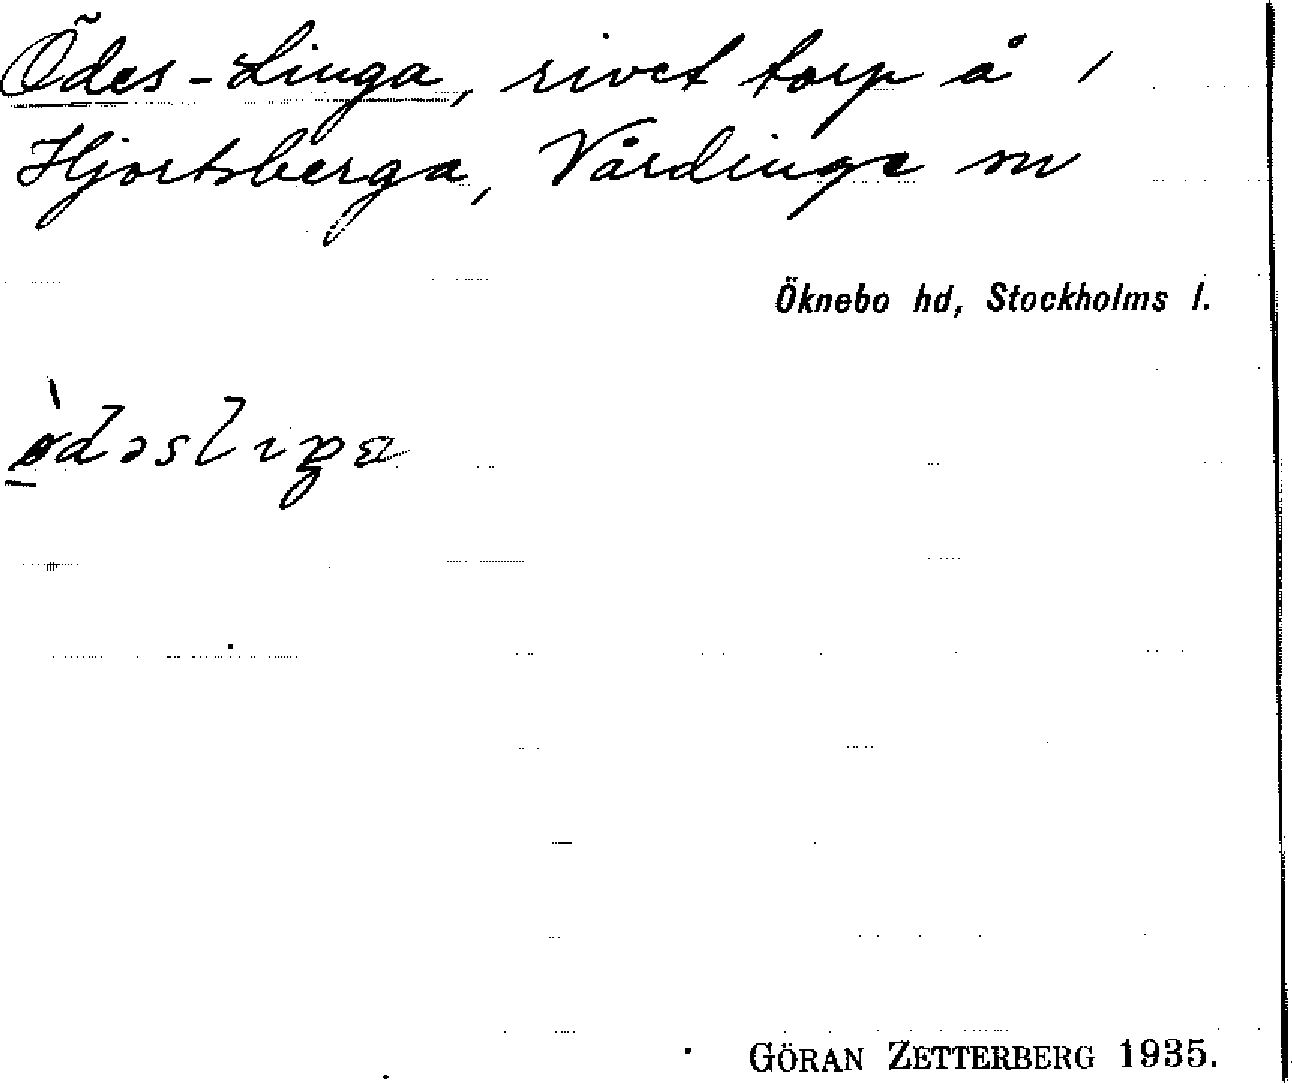 Ödes-Linga, rivet torp å
Hjortsberga, Vårdinge sn
Öknebo hd, Stockholms l.
GÖRAN ZETTERBERG 1935.